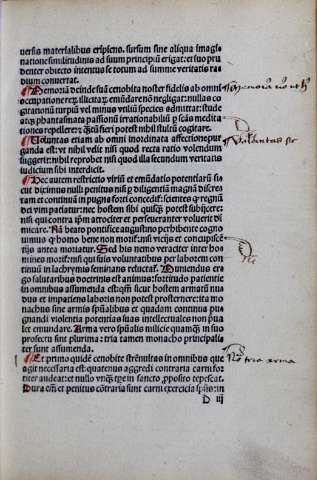 uersis materialibus eripiens. sursum sine aliqua imagi
natione similitudinis ad suum principiũ erigat: et suo pru
denter obiecto intentus se totum ad summe veritatis ra
dium conuertat.
¶ Memoriã deinde suã cenobita noster fidelis ab omni
occupatione reꝝ illicitaꝝ emũdare nõ negligat: nullas co
gitationũ turpiũ vel minus vtiliũ species admittat: stude
atqꝫ phantasmata passionũ irrationabiliũ ꝑ scãs medita
tiones repellere: ꝙ̃tũ fieri potest nihil stultũ cogitare.
¶ Voluntas etiam ab omni inordinata affectione pur
ganda est: vt nihil velit nisi quod recta ratio volendum
suggerit: nihil reprobet nisi quod illa secundum veritatis
iudicium sibi interdicit.
¶ Hec autem restrictio viriũ et emũdatio potentiarũ si
cut diximus nulli penitus nisi ꝑ diligentiã magnã discre
tam et continuã in pugna forti concedit: scientes ꝙ regnũ
dei vim patiatur: nec hostem sibi quisqꝫ potest subijcere:
nisi qui contra ipm̃ atrociter et perseueranter voluerit di
micare. Nã beato pontifice augustino perhibente cogno
uimus ꝙ homo bene non morit̃: nisi vicijs et concupiscẽ
tijs antea moriatur. Sed his nemo veraciter inter ho
mines morit̃: nisi qui suis voluntatibus per laborem con
tinuũ in lachrymis seminans reluctat̃. Muniendus er
go salutaribus doctrinis est animus: fortitudo patientie
in omnibus assumenda est: ꝙ sicut hostem armatũ nu
dus et impatiens laboris non potest prosternere: ita mo
nachus sine armis spũalibus et quadam continua pu
gnandi violentia potentias suas intellectuales non pua
let emundare. Arma vero spũalis milicie quamꝙ̃ in suo
profectu sint plurima: tria tamen monacho principali
ter sunt assumenda.
¶ Et primo quidẽ cenobite strẽnuitas in omnibus que
agit necessaria est: quatenus aggredi contraria carni for
titer audeat: et nullo vnqꝫ tp̃e in sancto ꝓposito tepescat.
Dura em̃ et penitus cõtraria sunt carni exercicia spũs: in
D iij
Voluntas
tria arma